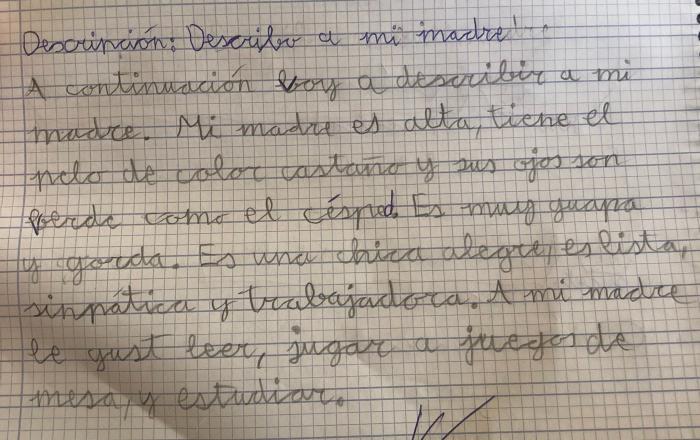 Descripción: Describo a mi madre!..
A continuación voy a describir a mi
madre. Mi madre es alta, tiene el
pelo de color castaño y sus ojos son
verde como el césped. Es muy guapa
y gorda. Es una chica alegre, es lista,
sinpática y trabajadora. A mi madre
le gust leer, jugar a juegos de
mesa, y estudiar.